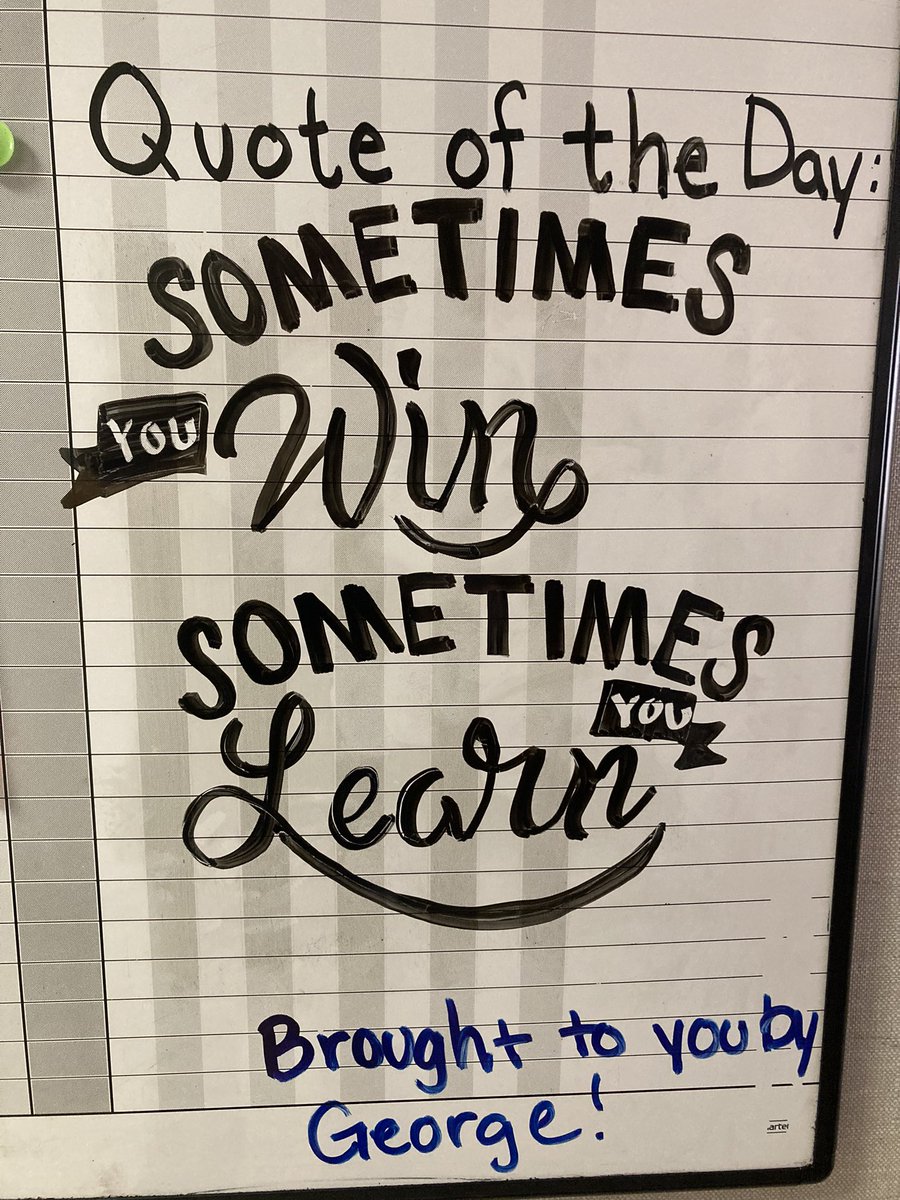 Quote of the Day:
SOMETIMES
YOU Win
SOMETIMES
YOU
Learn
Brought to you by
George!
arteil